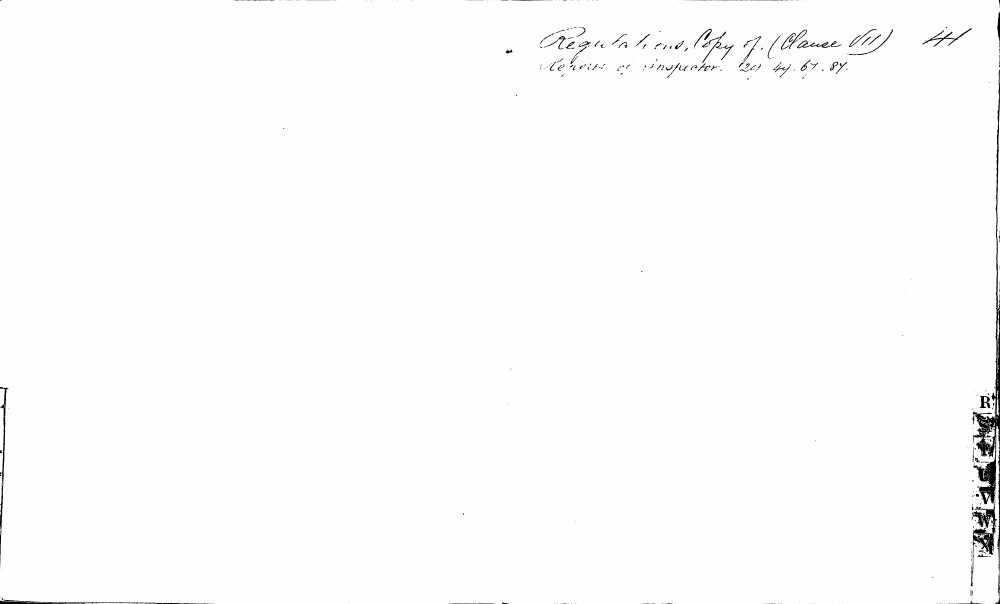 Regulations, Copy of. (Clause VII) 41
Reports of inspector. 29 49. 67. 87.
R
U
V
W
X